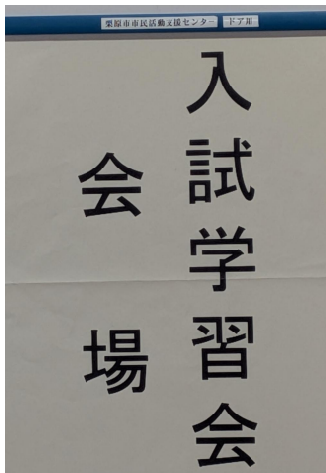 栗原市市民活動支援センター ドア用
入試学習会
会場